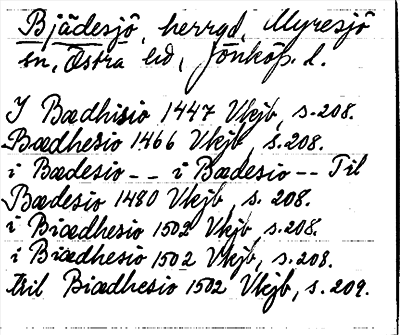 Bjädesjö, herrgd, Myresjö
sn, Östra hd, Jönköp. l.
I Bædhisio 1447 Vkjb, s. 208.
Bædhesio 1466 Vkjb, s. 208.
i Bædesio -- i Bædesio -- Til
Bædesio 1480 Vkjb, s. 208.
i Biædhesio 1502 Vkjb, s. 208.
i Biædhesio 1502 Vkjb, s. 208.
till Biædhesio 1502 Vkjb, s. 209.